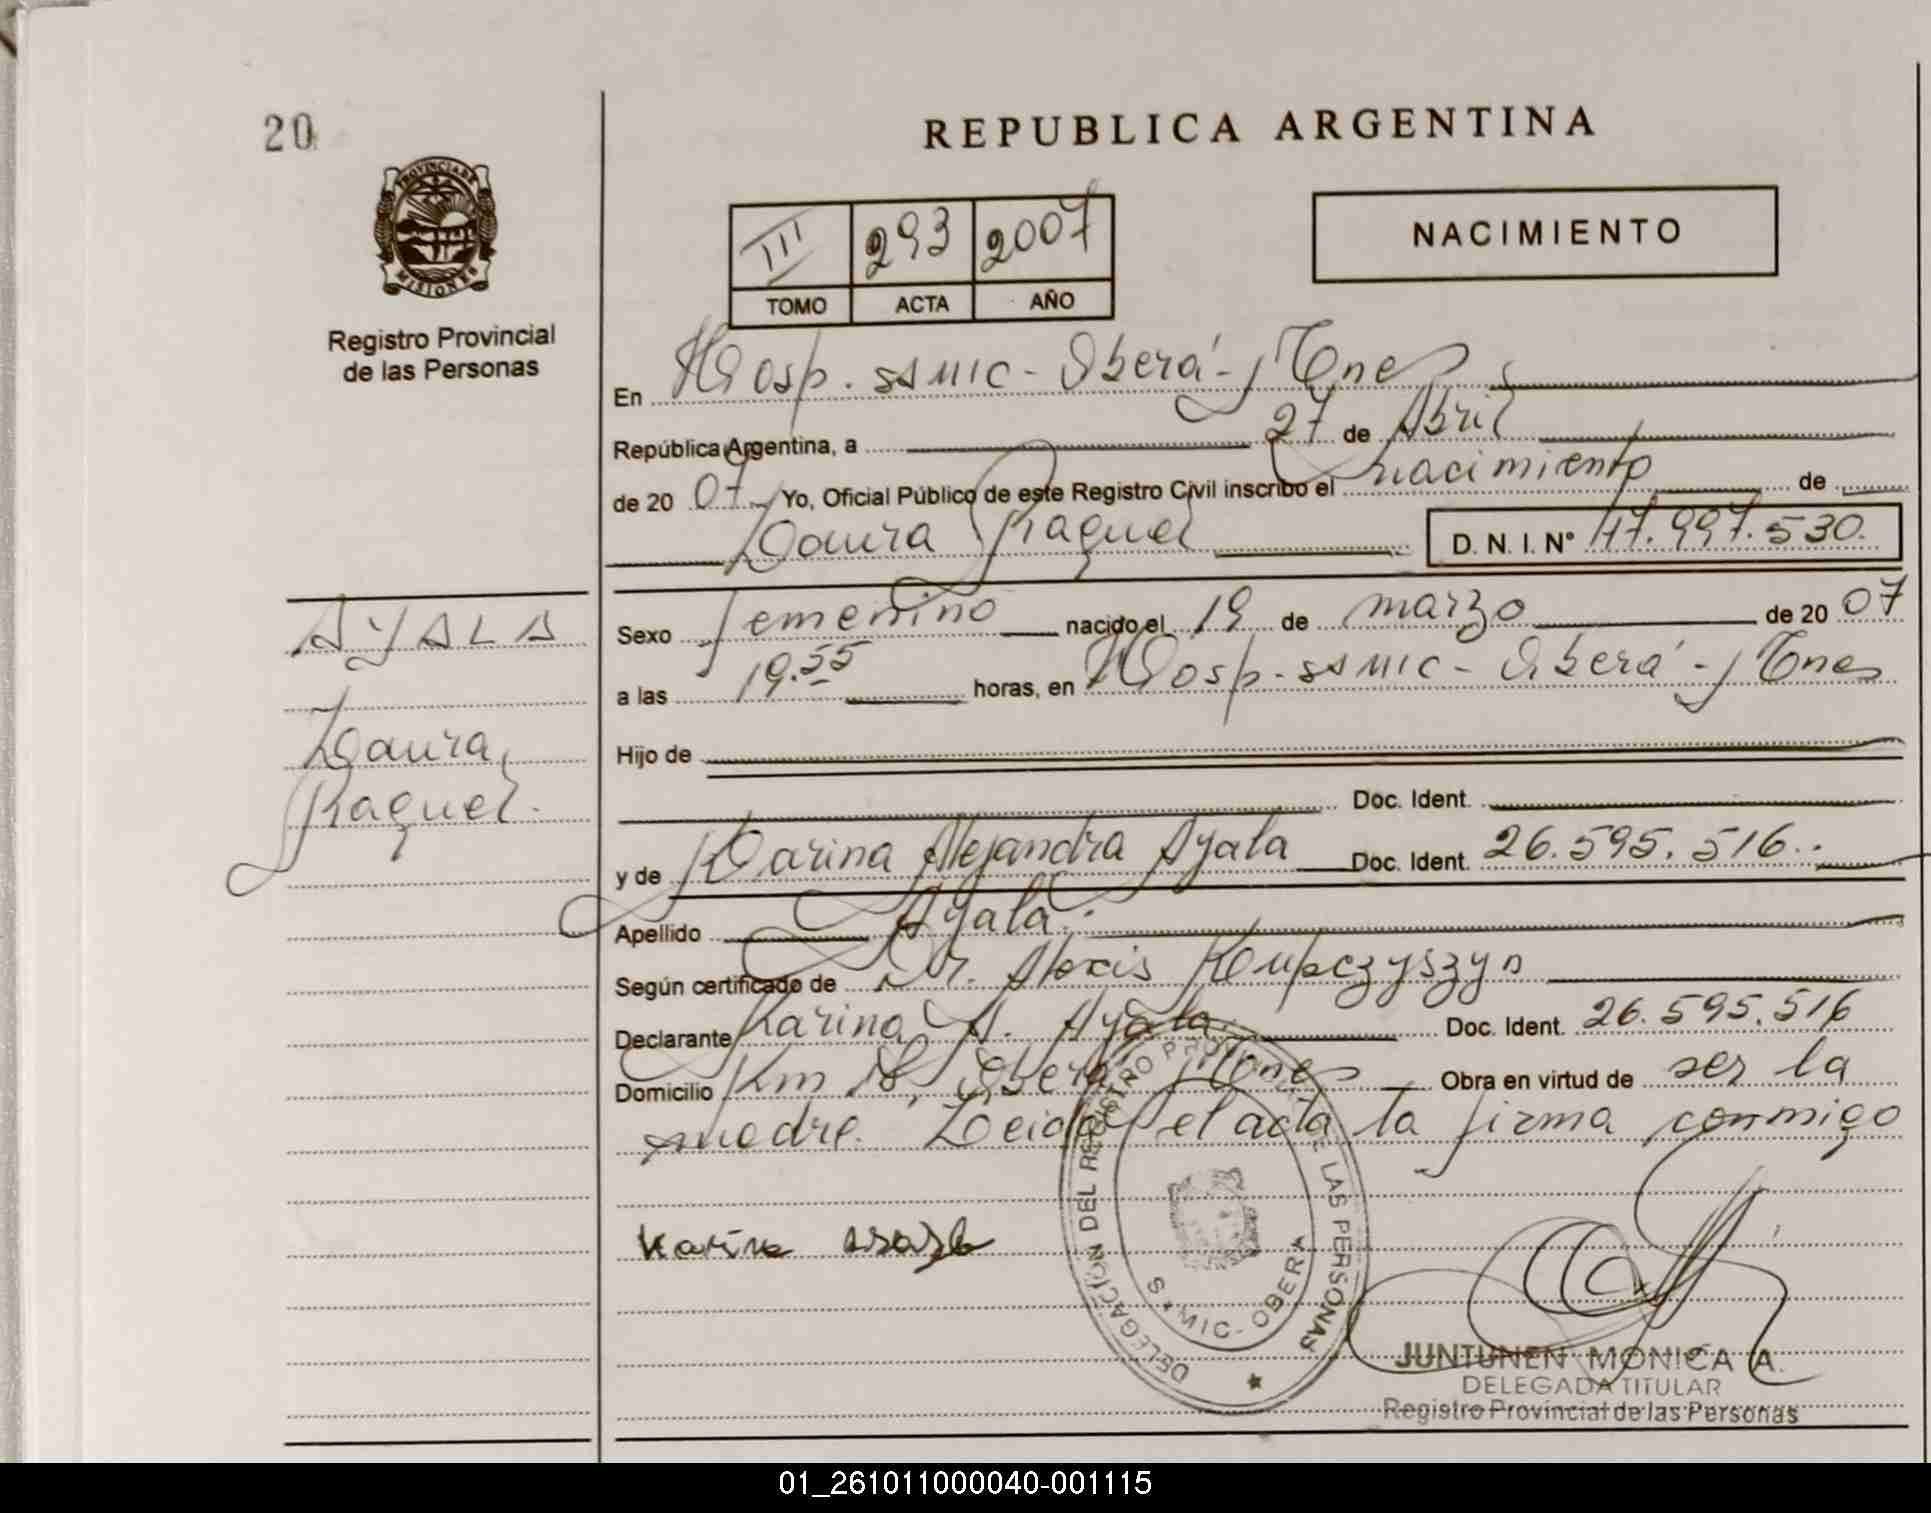 20
REPUBLICA ARGENTINA
PROVINCIA DE
MISIONES
Registro Provincial
de las Personas
III 293 2007
TOMO ACTA AÑO
NACIMIENTO
En Hosp. SAMIC - Oberá - Mnes
República Argentina, a 27 de Abril
de 20 07 Yo, Oficial Público de este Registro Civil inscribo el nacimiento de
Laura Raquel D. N. I. Nº 47.997.530.
AYALA
Laura
Raquel.
Sexo femenino nacido el 19 de marzo de 20 07
a las 19.55 horas, en Hosp. SAMIC - Oberá - Mnes
Hijo de
Doc. Ident.
y de Karina Alejandra Ayala Doc. Ident. 26.595.516..
Apellido Ayala.
Según certificado de Dr. Alexis
Declarante Karina A. Ayala Doc. Ident. 26.595.516
Domicilio Km Oberá Mnes Obra en virtud de ser la
madre. Leida el acta la firma conmigo
Karina
DELEGACIÓN DEL REGISTRO PROVINCIAL DE LAS PERSONAS
SAMIC - OBERA
JUNTUNEN MONICA A.
DELEGADA TITULAR
Registro Provincial de las Personas
01_261011000040-001115